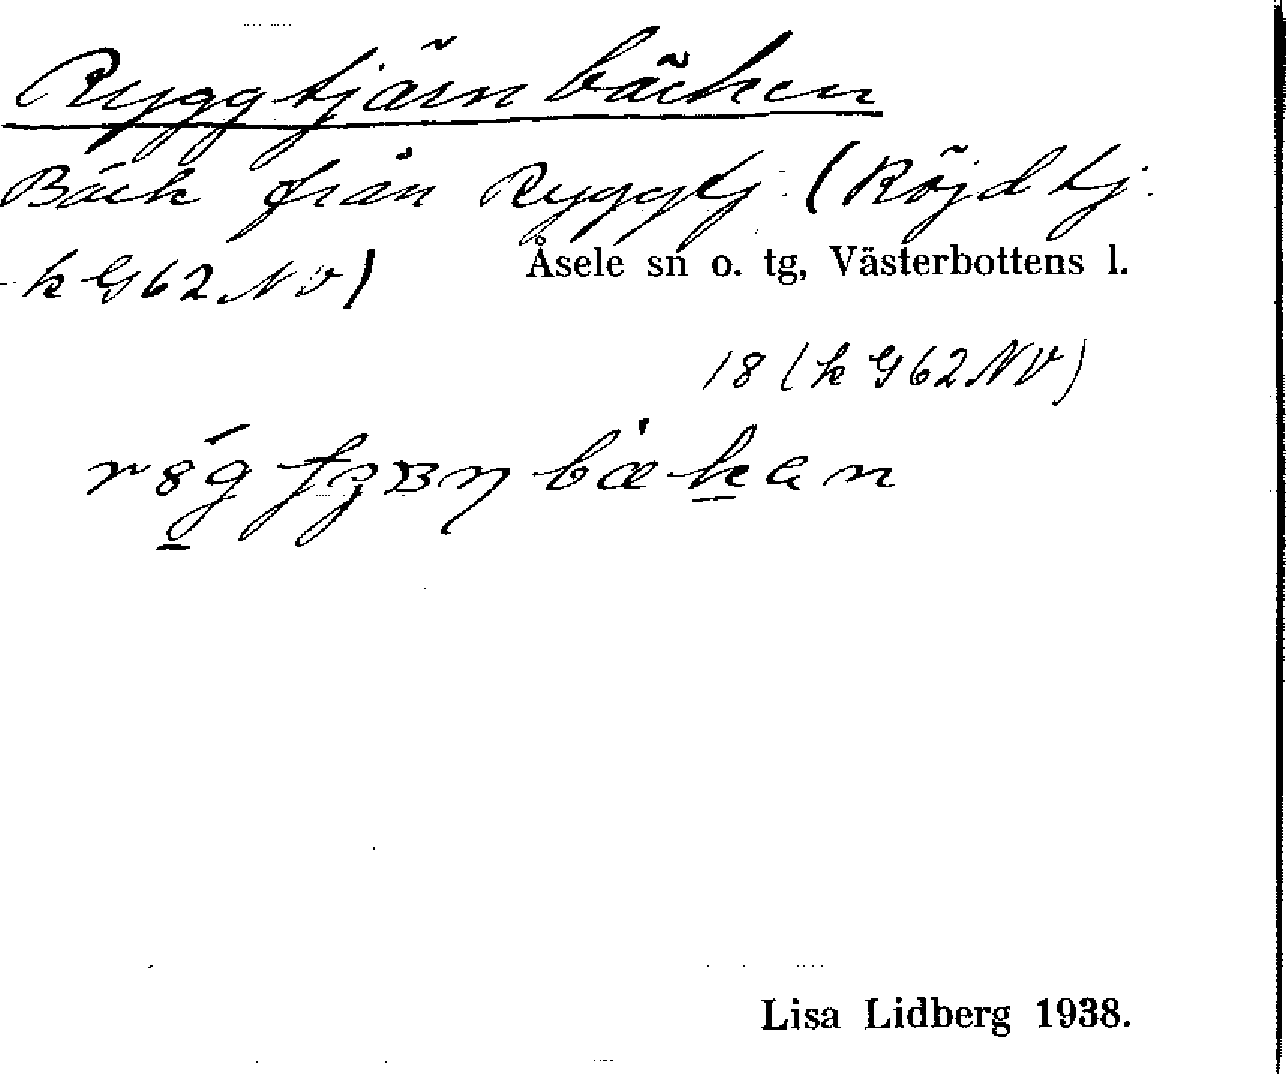 Ryggtjärnbäcken
Bäck från Ryggtj. (Röjdtj.
k G62NV)
Åsele sn o. tg, Västerbottens l.
18 (k G62NV)
Lisa Lidberg 1938.